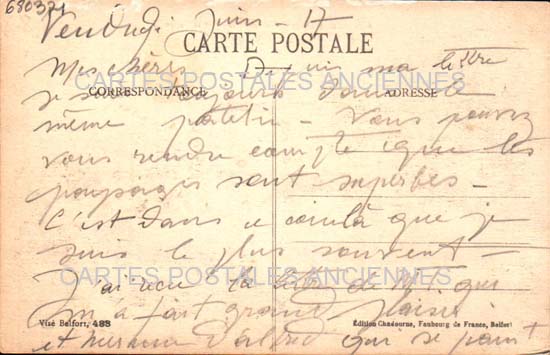 680371
Vendredi juin - 17
CARTE POSTALE
Mes chéris Depuis ma lettre
CARTES POSTALES ANCIENNES
je suis toujours dans le
CORRESPONDANCE
ADRESSE
même patelin - Vous pouvez
vous rendre compte que les
paysages sont superbes -
C'est dans ce coin là que je
suis le plus souvent -
CARTES POSTALES ANCIENNES
J'ai reçu la lettre de qui
m'a fait grand plaisir
Visé Belfort, 488
Édition Chadourne, Faubourg de France, Belfort
et d'Alfred qui se